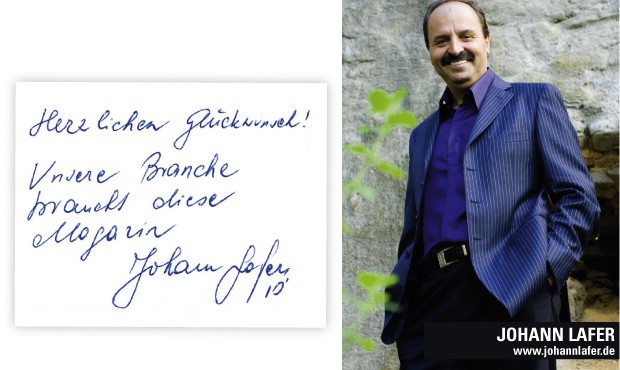 Herzlichen Glückwunsch!
Unsere Branche
braucht diese
Magazin
Johann Lafer
10'
JOHANN LAFER
www.johannlafer.de